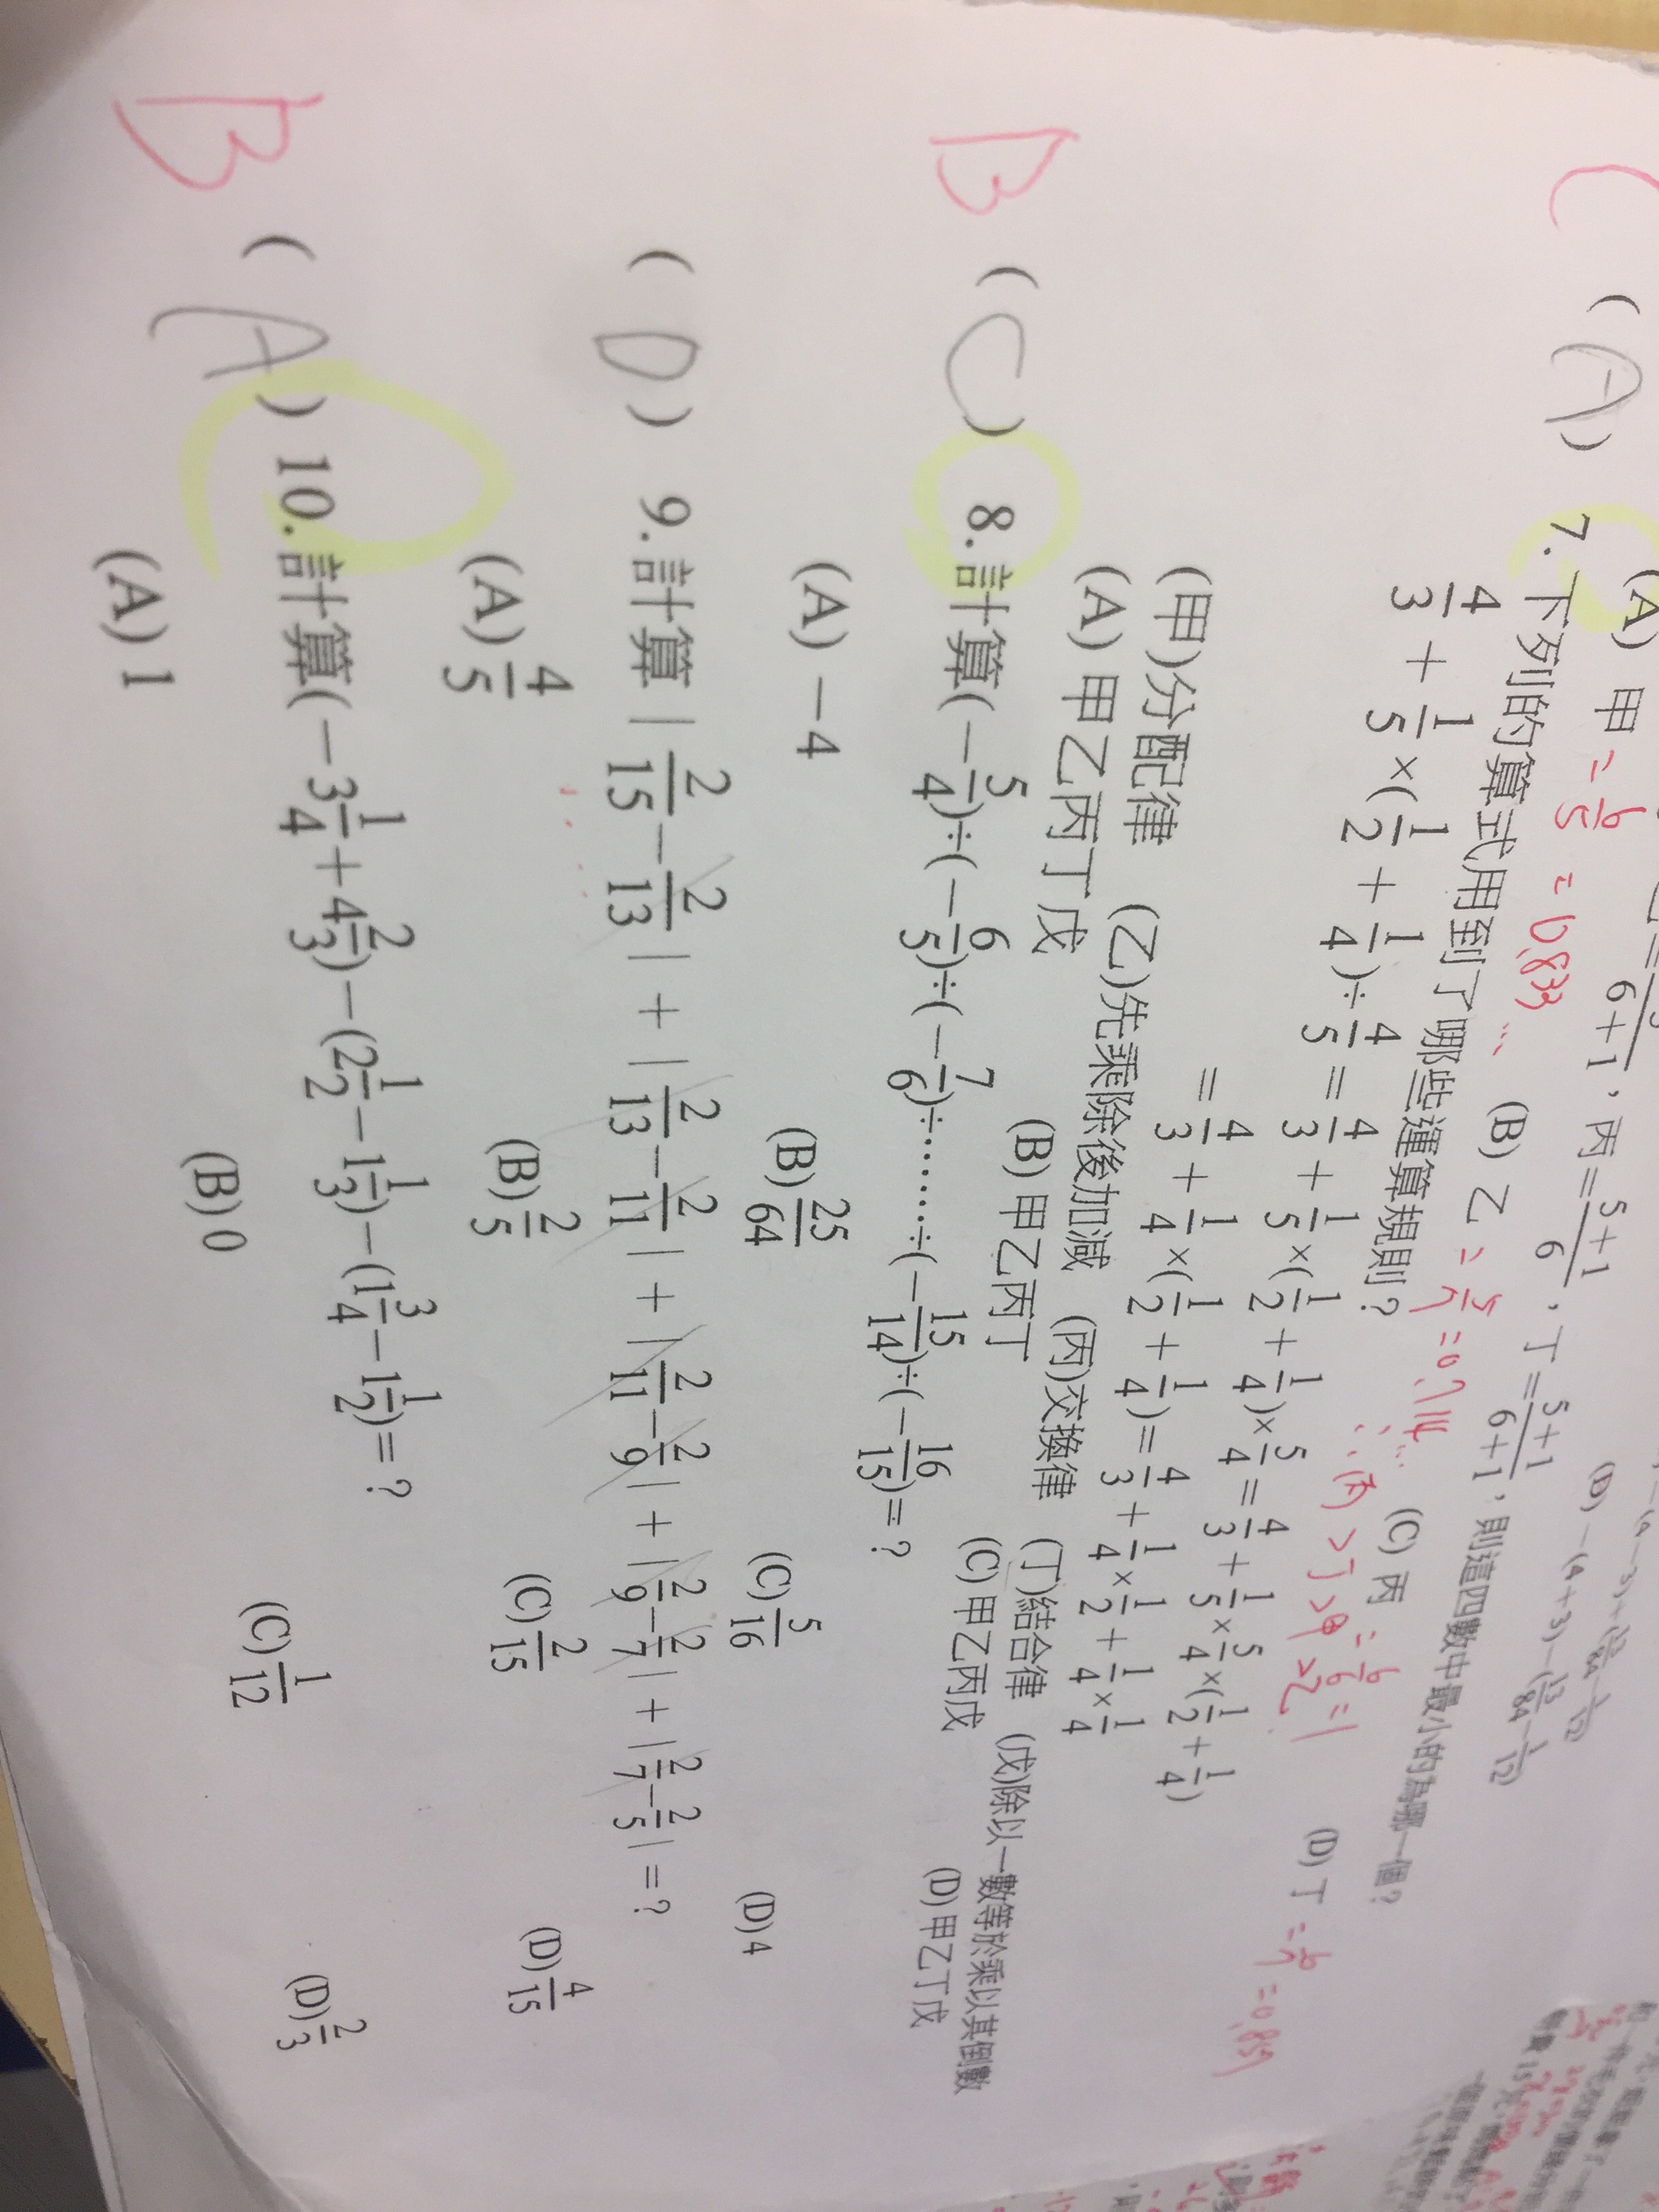 = 6+1，丙= 5+1/6，丁= 5+1/6+1，則這四數中最小的為哪一個？
(A) 甲 = 6/5 = 0.833... (B) 乙 = 5/7 = 0.714... (C) 丙 (D) 丁 = 6/7 = 0.857
∴ 丙 > 丁 > 甲 > 乙 = 6/6 = 1
C (A) 7. 下列的算式用到了哪些運算規則？
4/3 + 1/5 ×( 1/2 + 1/4 )÷ 4/5 = 4/3 + 1/5 ×( 1/2 + 1/4 )× 5/4 = 4/3 + 1/5 × 5/4 ×( 1/2 + 1/4 )
= 4/3 + 1/4 ×( 1/2 + 1/4 )= 4/3 + 1/4 × 1/2 + 1/4 × 1/4
(甲)分配律 (乙)先乘除後加減 (丙)交換律 (丁)結合律 (戊)除以一數等於乘以其倒數
(A) 甲乙丙丁戊 (B) 甲乙丙丁 (C) 甲乙丙戊 (D) 甲乙丁戊
B (C) 8. 計算(- 5/4 )÷(- 6/5 )÷(- 7/6 )÷……÷(- 15/14 )÷(- 16/15 )=？
(A) -4 (B) 25/64 (C) 5/16 (D) 4
(D) 9. 計算 | 2/15 - 2/13 | + | 2/13 - 2/11 | + | 2/11 - 2/9 | + | 2/9 - 2/7 | + | 2/7 - 2/5 | =？
(A) 4/5 (B) 2/5 (C) 2/15 (D) 4/15
B (A) 10. 計算(-3 1/4 + 4 2/3 )-(2 1/2 - 1 1/3 )-(1 3/4 - 1 1/2 )=？
(A) 1 (B) 0 (C) 1/12 (D) 2/3